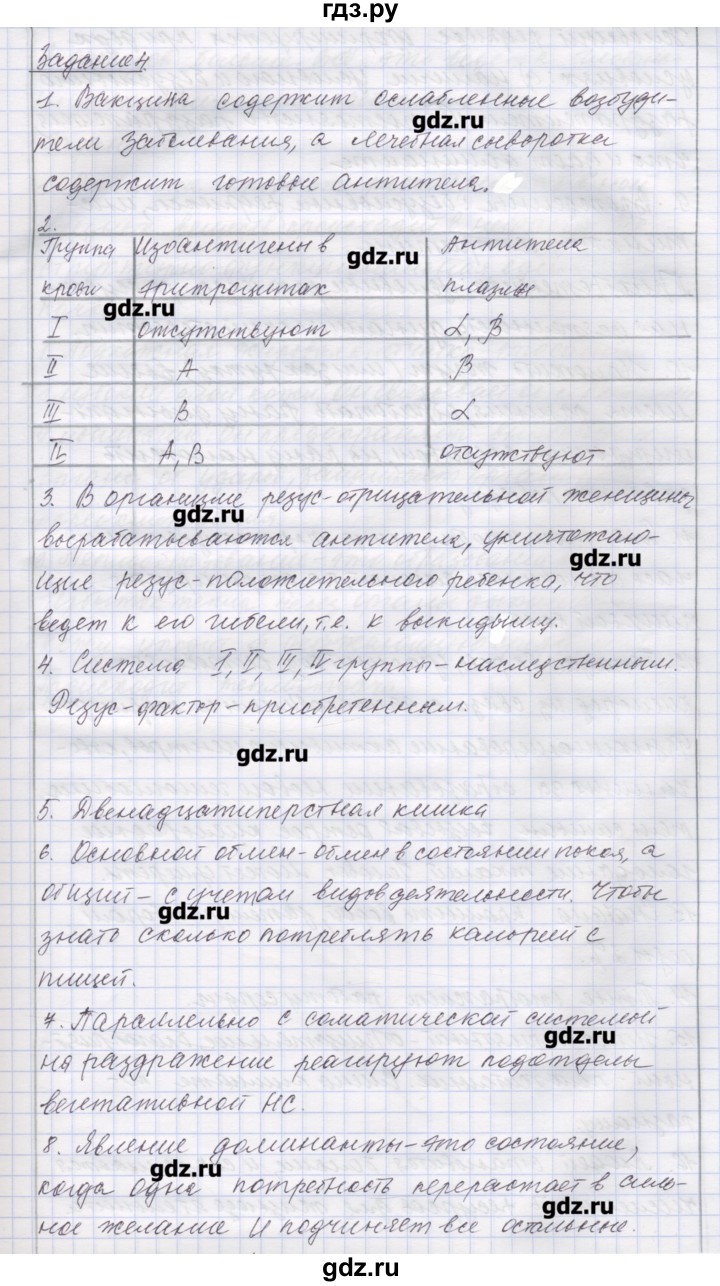 гдз.ру
Задание 4
1. Вакцина содержит ослабленные возбуди-
gdz.ru
тели заболевания, а лечебная сыворотка
содержит готовые антитела.
2.
Группа Изоантигены в Антитела
gdz.ru
крови эритроцитах плазмы
gdz.ru
I отсутствуют α, β
II A β
III B α
IV A, B отсутствуют
3. В организме резус-отрицательной женщины
gdz.ru
вырабатываются антитела, уничтожаю-
gdz.ru
щие резус-положительного ребенка, что
ведет к его гибели, т.е. к выкидышу.
4. Система I, II, III, IV группы - наследственным.
Резус-фактор - приобретенным.
gdz.ru
5. Двенадцатиперстная кишка
6. Основной обмен - обмен в состоянии покоя, а
общий - с учетом видов деятельности. Чтобы
gdz.ru
знать сколько потреблять калорий с
пищей.
7. Параллельно с соматической системой
gdz.ru
на раздражение реагируют подотделы
вегетативной НС.
8. Явление доминанты - это состояние,
gdz.ru
когда одна потребность перерастает в силь-
gdz.ru
ное желание и подчиняет все остальные.
gdz.ru